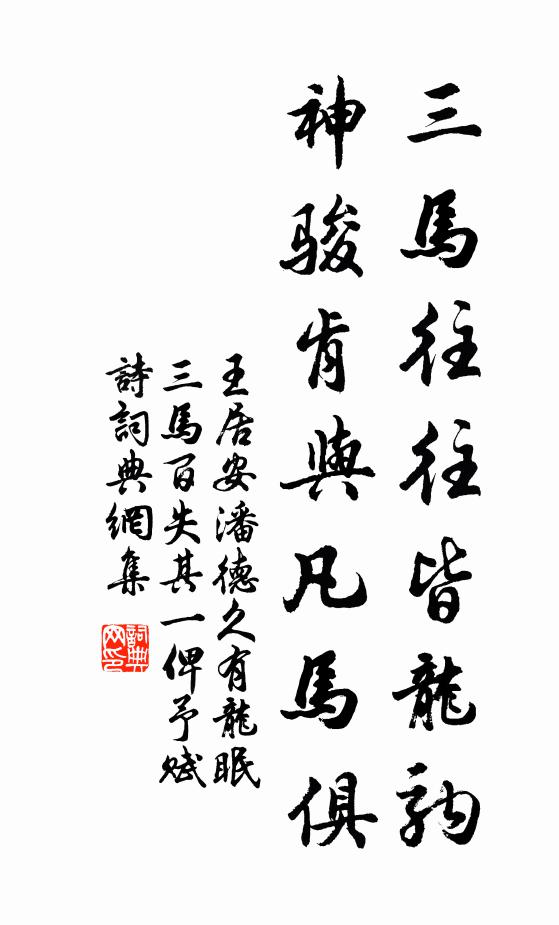 三馬往往皆龍駒
神駿肯與凡馬俱
王居安潘德久有龍眠
三馬百失其一俾予賦
詩詞典網集
詞典
网印